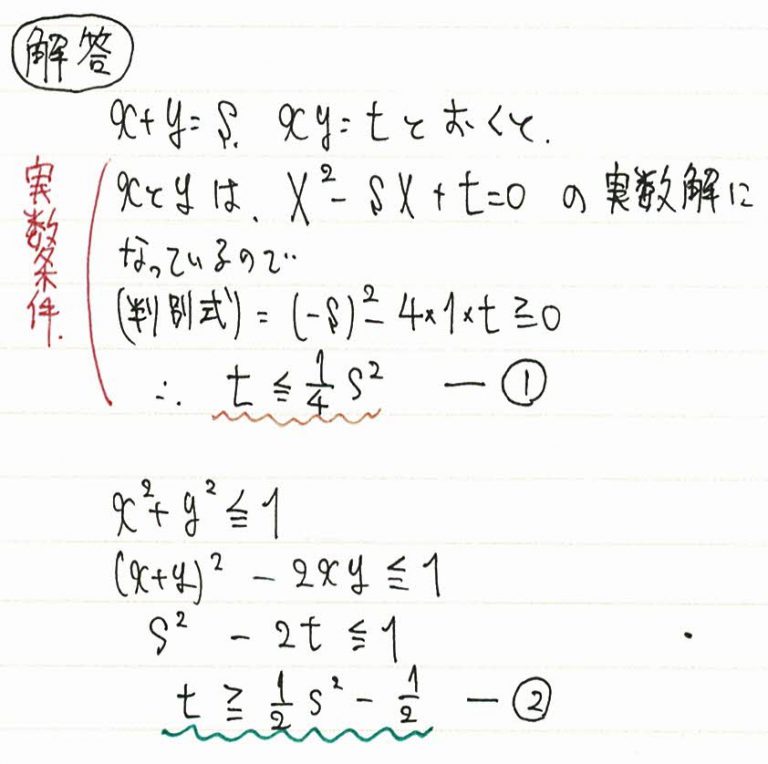 解答
x+y=s, xy=tとおくと,
xとyは, X²-sX+t=0 の実数解に
なっているので
(判別式)=(-s)²-4×1×t≧0
∴ t≦1/4 s² ―①
実数条件.
x²+y²≦1
(x+y)²-2xy≦1
s²-2t≦1
t≧1/2 s²-1/2 ―②